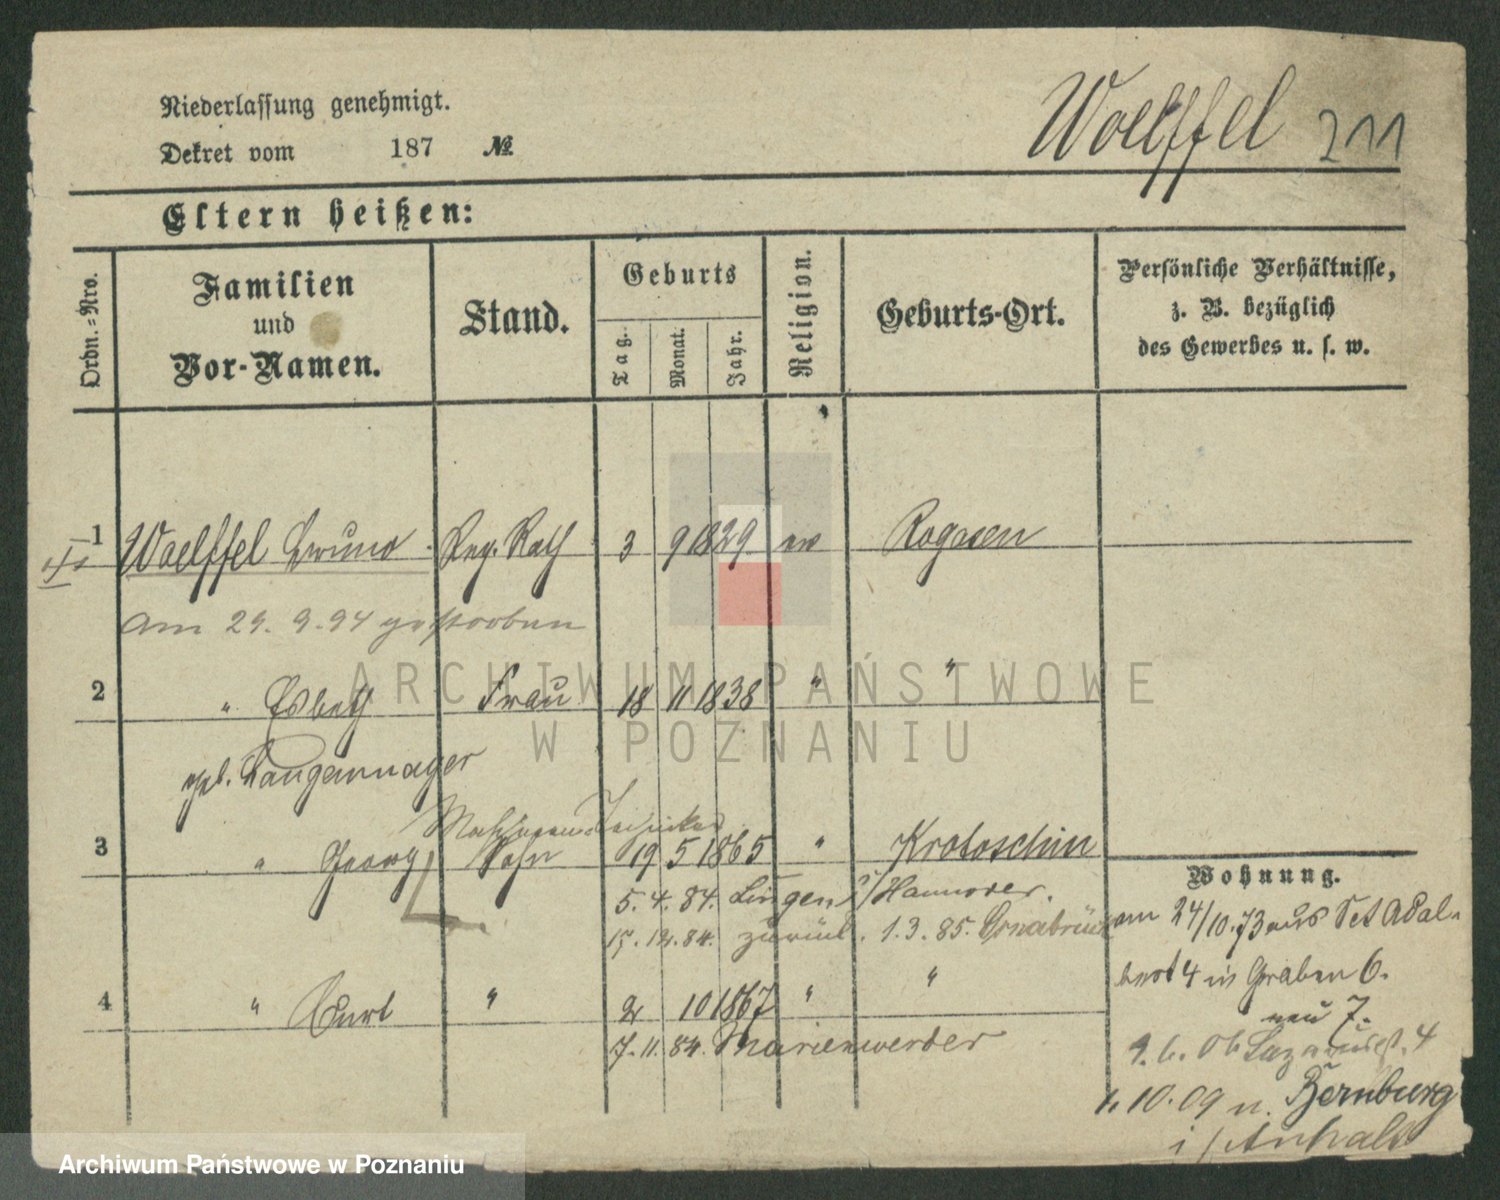 Niederlassung genehmigt.
Dekret vom 187 №
Woelffel 211
Eltern heißen:
Ordn.-Nro.
Familien
und
Vor-Namen.
Stand.
Geburts
Tag.
Monat.
Jahr.
Religion.
Geburts-Ort.
Persönliche Verhältnisse,
z. B. bezüglich
des Gewerbes u. s. w.
1 Woelffel Bruno Reg. Rath 3 9 1829 ev Rogasen
am 29. 9. 94 gestorben
2 " Frau 18 11 1838 " "
geb. Langenmayer
Maschinen-Techniker
3 " Georg Sohn 19 5 1865 " Krotoschin
5. 4. 84. Lingen i/Hannover.
15. 12. 84. zurück. 1. 3. 85. Osnabrück
4 " Curt " 2 10 1867 " "
7. 11. 84. Marienwerder
Wohnung.
am 24/10.73 aus Set Adal-
bert 4 in Graben 6.
neu 7.
Lazarusst. 4
10. 09 n. Bernburg
i/Anhalt
ARCHIWUM PAŃSTWOWE
W POZNANIU
Archiwum Państwowe w Poznaniu